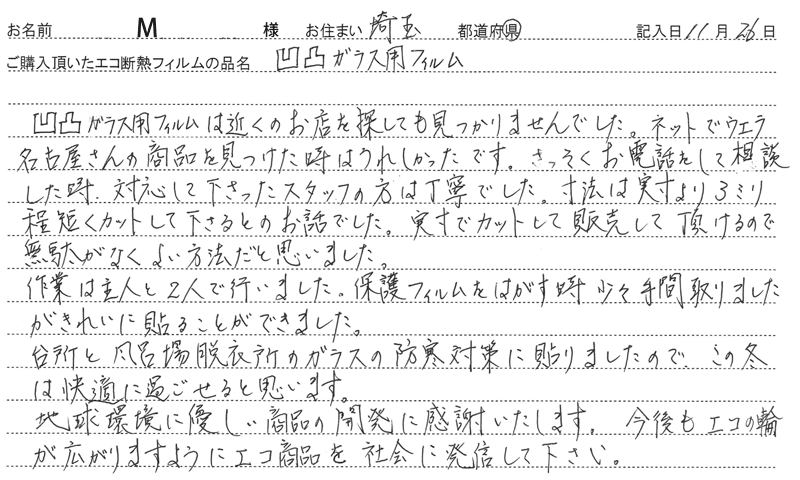 お名前 M 様 お住まい 埼玉 都道府県 記入日 11月 26日
ご購入頂いたエコ断熱フィルムの品名 凹凸ガラス用フィルム
凹凸ガラス用フィルムは近くのお店を探しても見つかりませんでした。ネットでウエラ
名古屋さんの商品を見つけた時はうれしかったです。さっそくお電話をして相談
した時、対応して下さったスタッフの方は丁寧でした。寸法は実寸より3ミリ
程短くカットして下さるとのお話でした。実寸でカットして販売して頂けるので
無駄がなくよい方法だと思いました。
作業は主人と2人で行いました。保護フィルムをはがす時少々手間取りました
がきれいに貼ることができました。
台所と風呂場脱衣所のガラスの防寒対策に貼りましたので、この冬
は快適に過ごせると思います。
地球環境に優しい商品の開発に感謝いたします。 今後もエコの輪
が広がりますようにエコ商品を社会に発信して下さい。